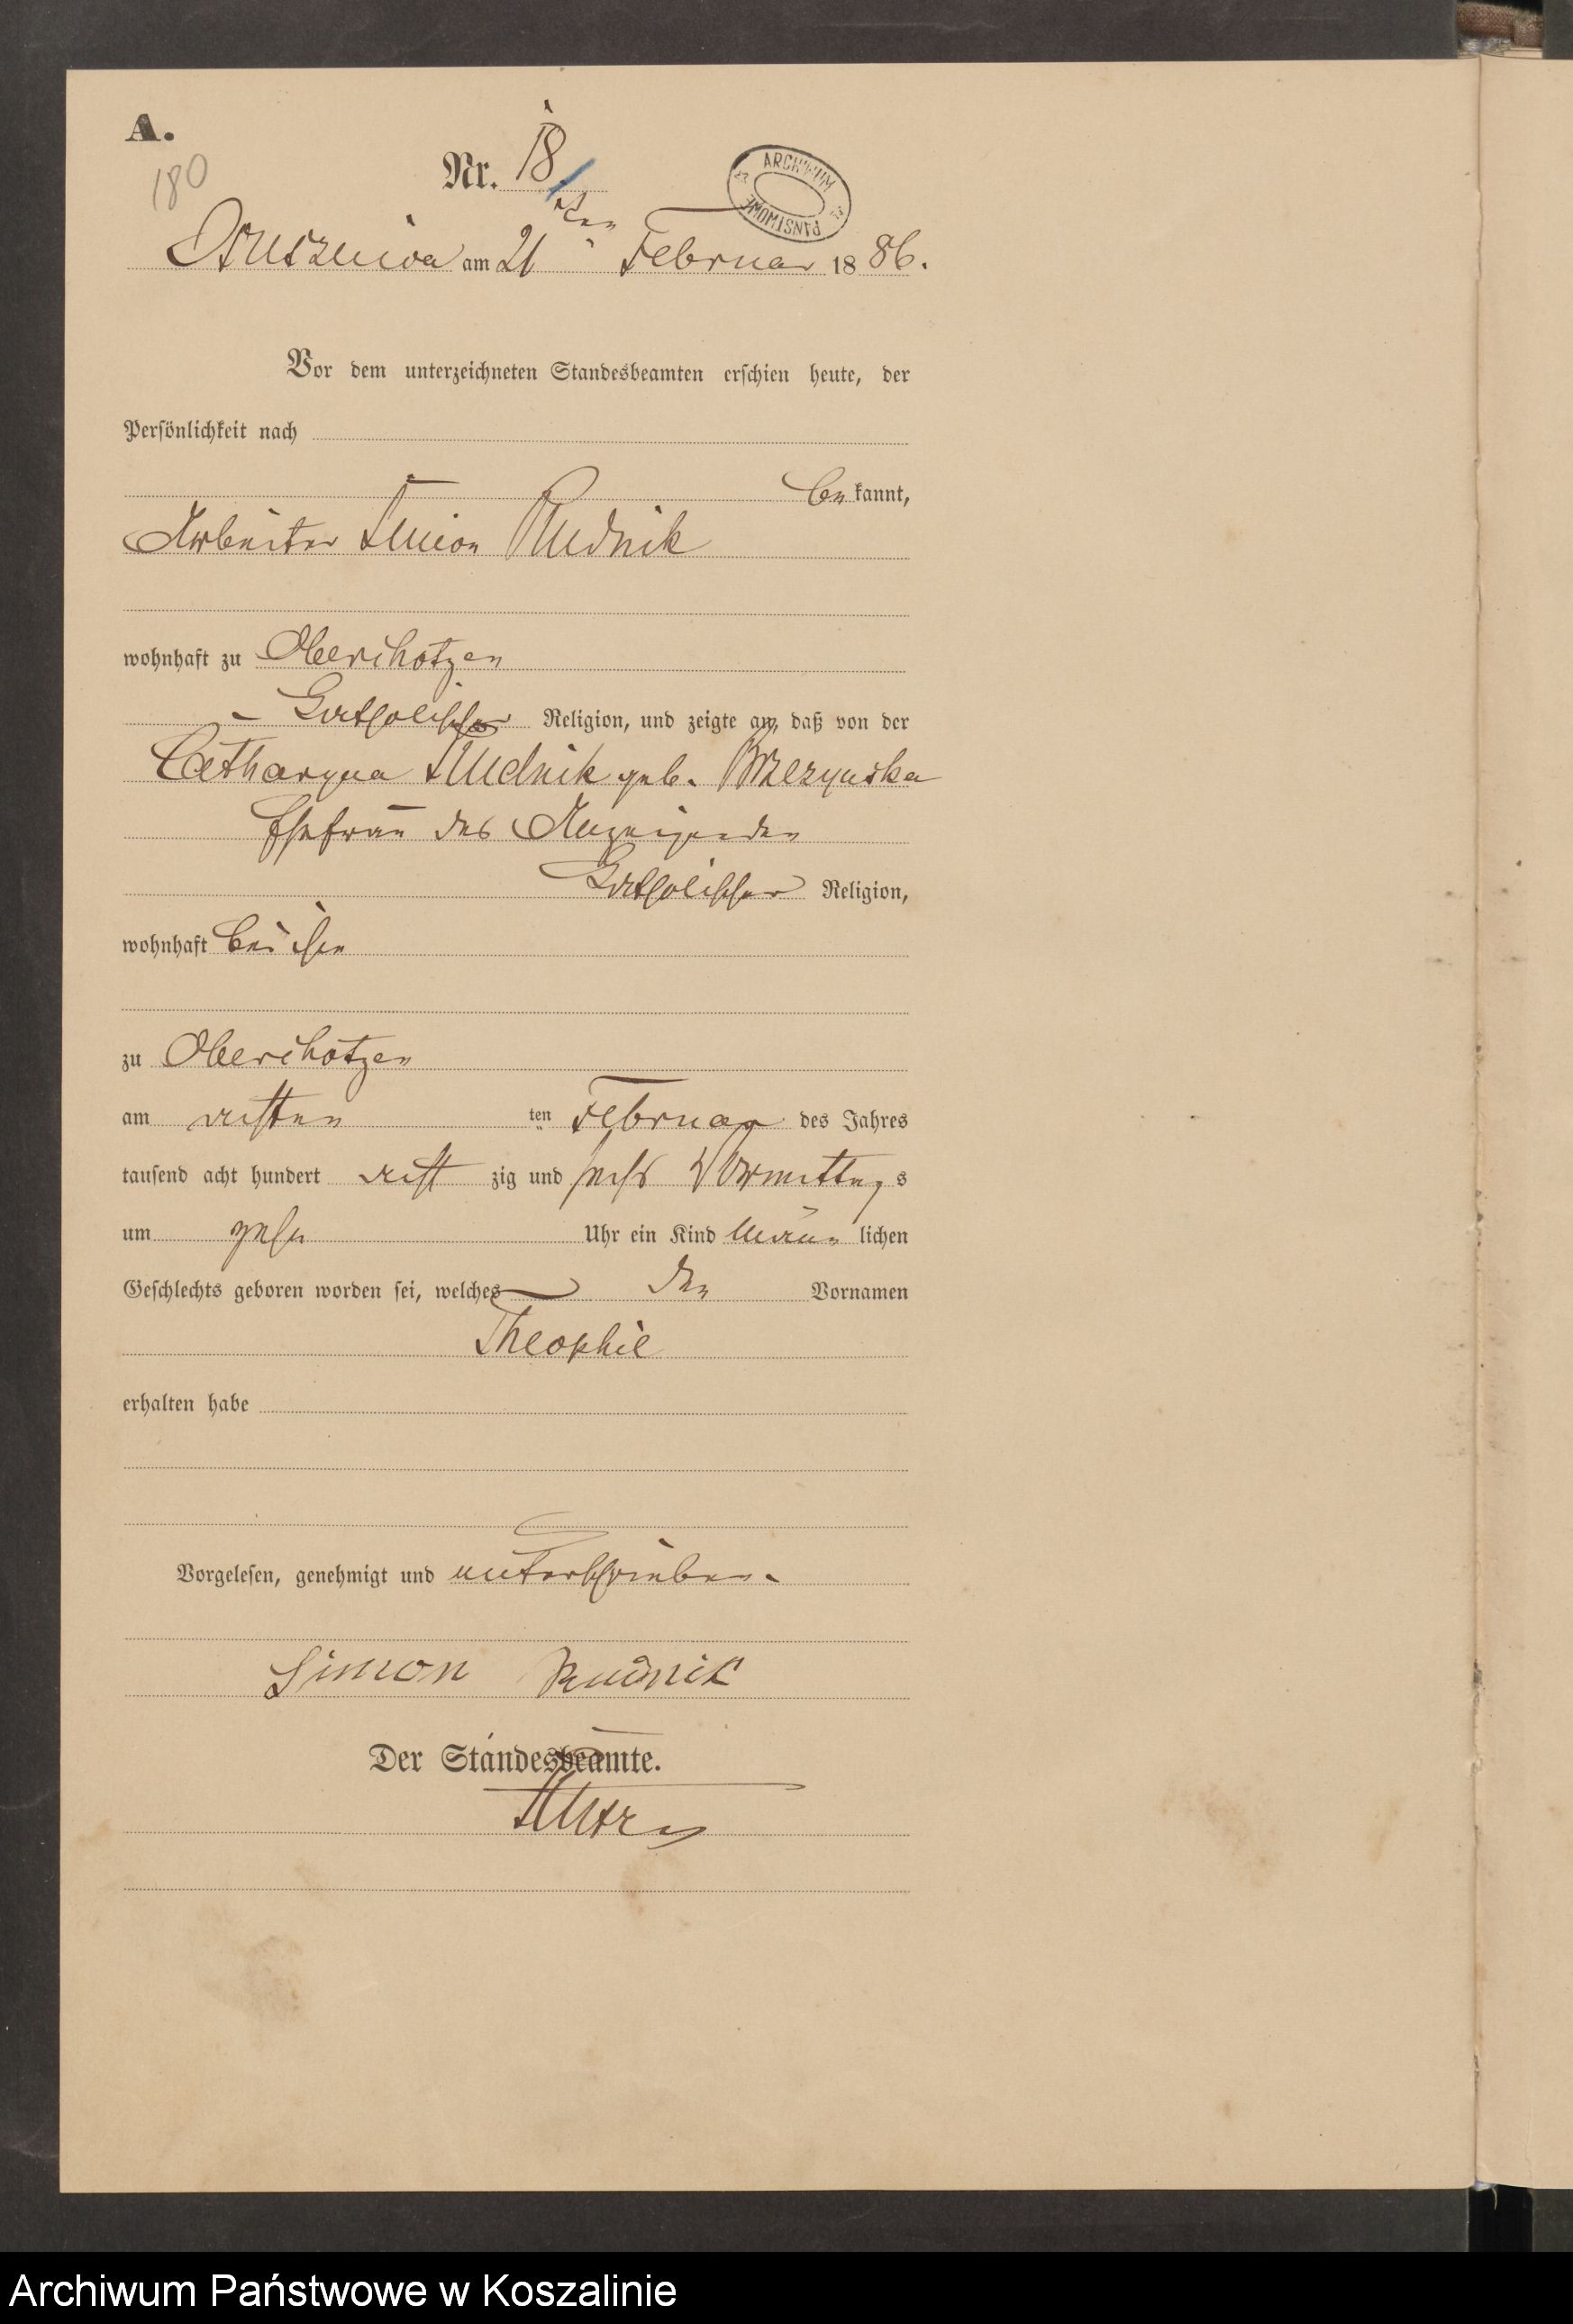 A.
180
Nr. 18
ARCHIWUM PAŃSTWOWE
am 21ten Februar 1886.
Vor dem unterzeichneten Standesbeamten erschien heute, der
Persönlichkeit nach
bekannt,
Arbeiter Simon Rudnik
wohnhaft zu Oberchotzen
katholischer Religion, und zeigte an, daß von der
Catharyna Rudnik geb. Brzezynska
Ehefrau des Anzeigenden
katholischer Religion,
wohnhaft bei ihm
zu Oberchotzen
am achten ten Februar des Jahres
tausend acht hundert acht zig und sechs Vormittags
um zehn Uhr ein Kind männlichen
Geschlechts geboren worden sei, welches den Vornamen
Theophil
erhalten habe
Vorgelesen, genehmigt und unterschrieben.
Simon Rudnik
Der Standesbeamte.
Archiwum Państwowe w Koszalinie